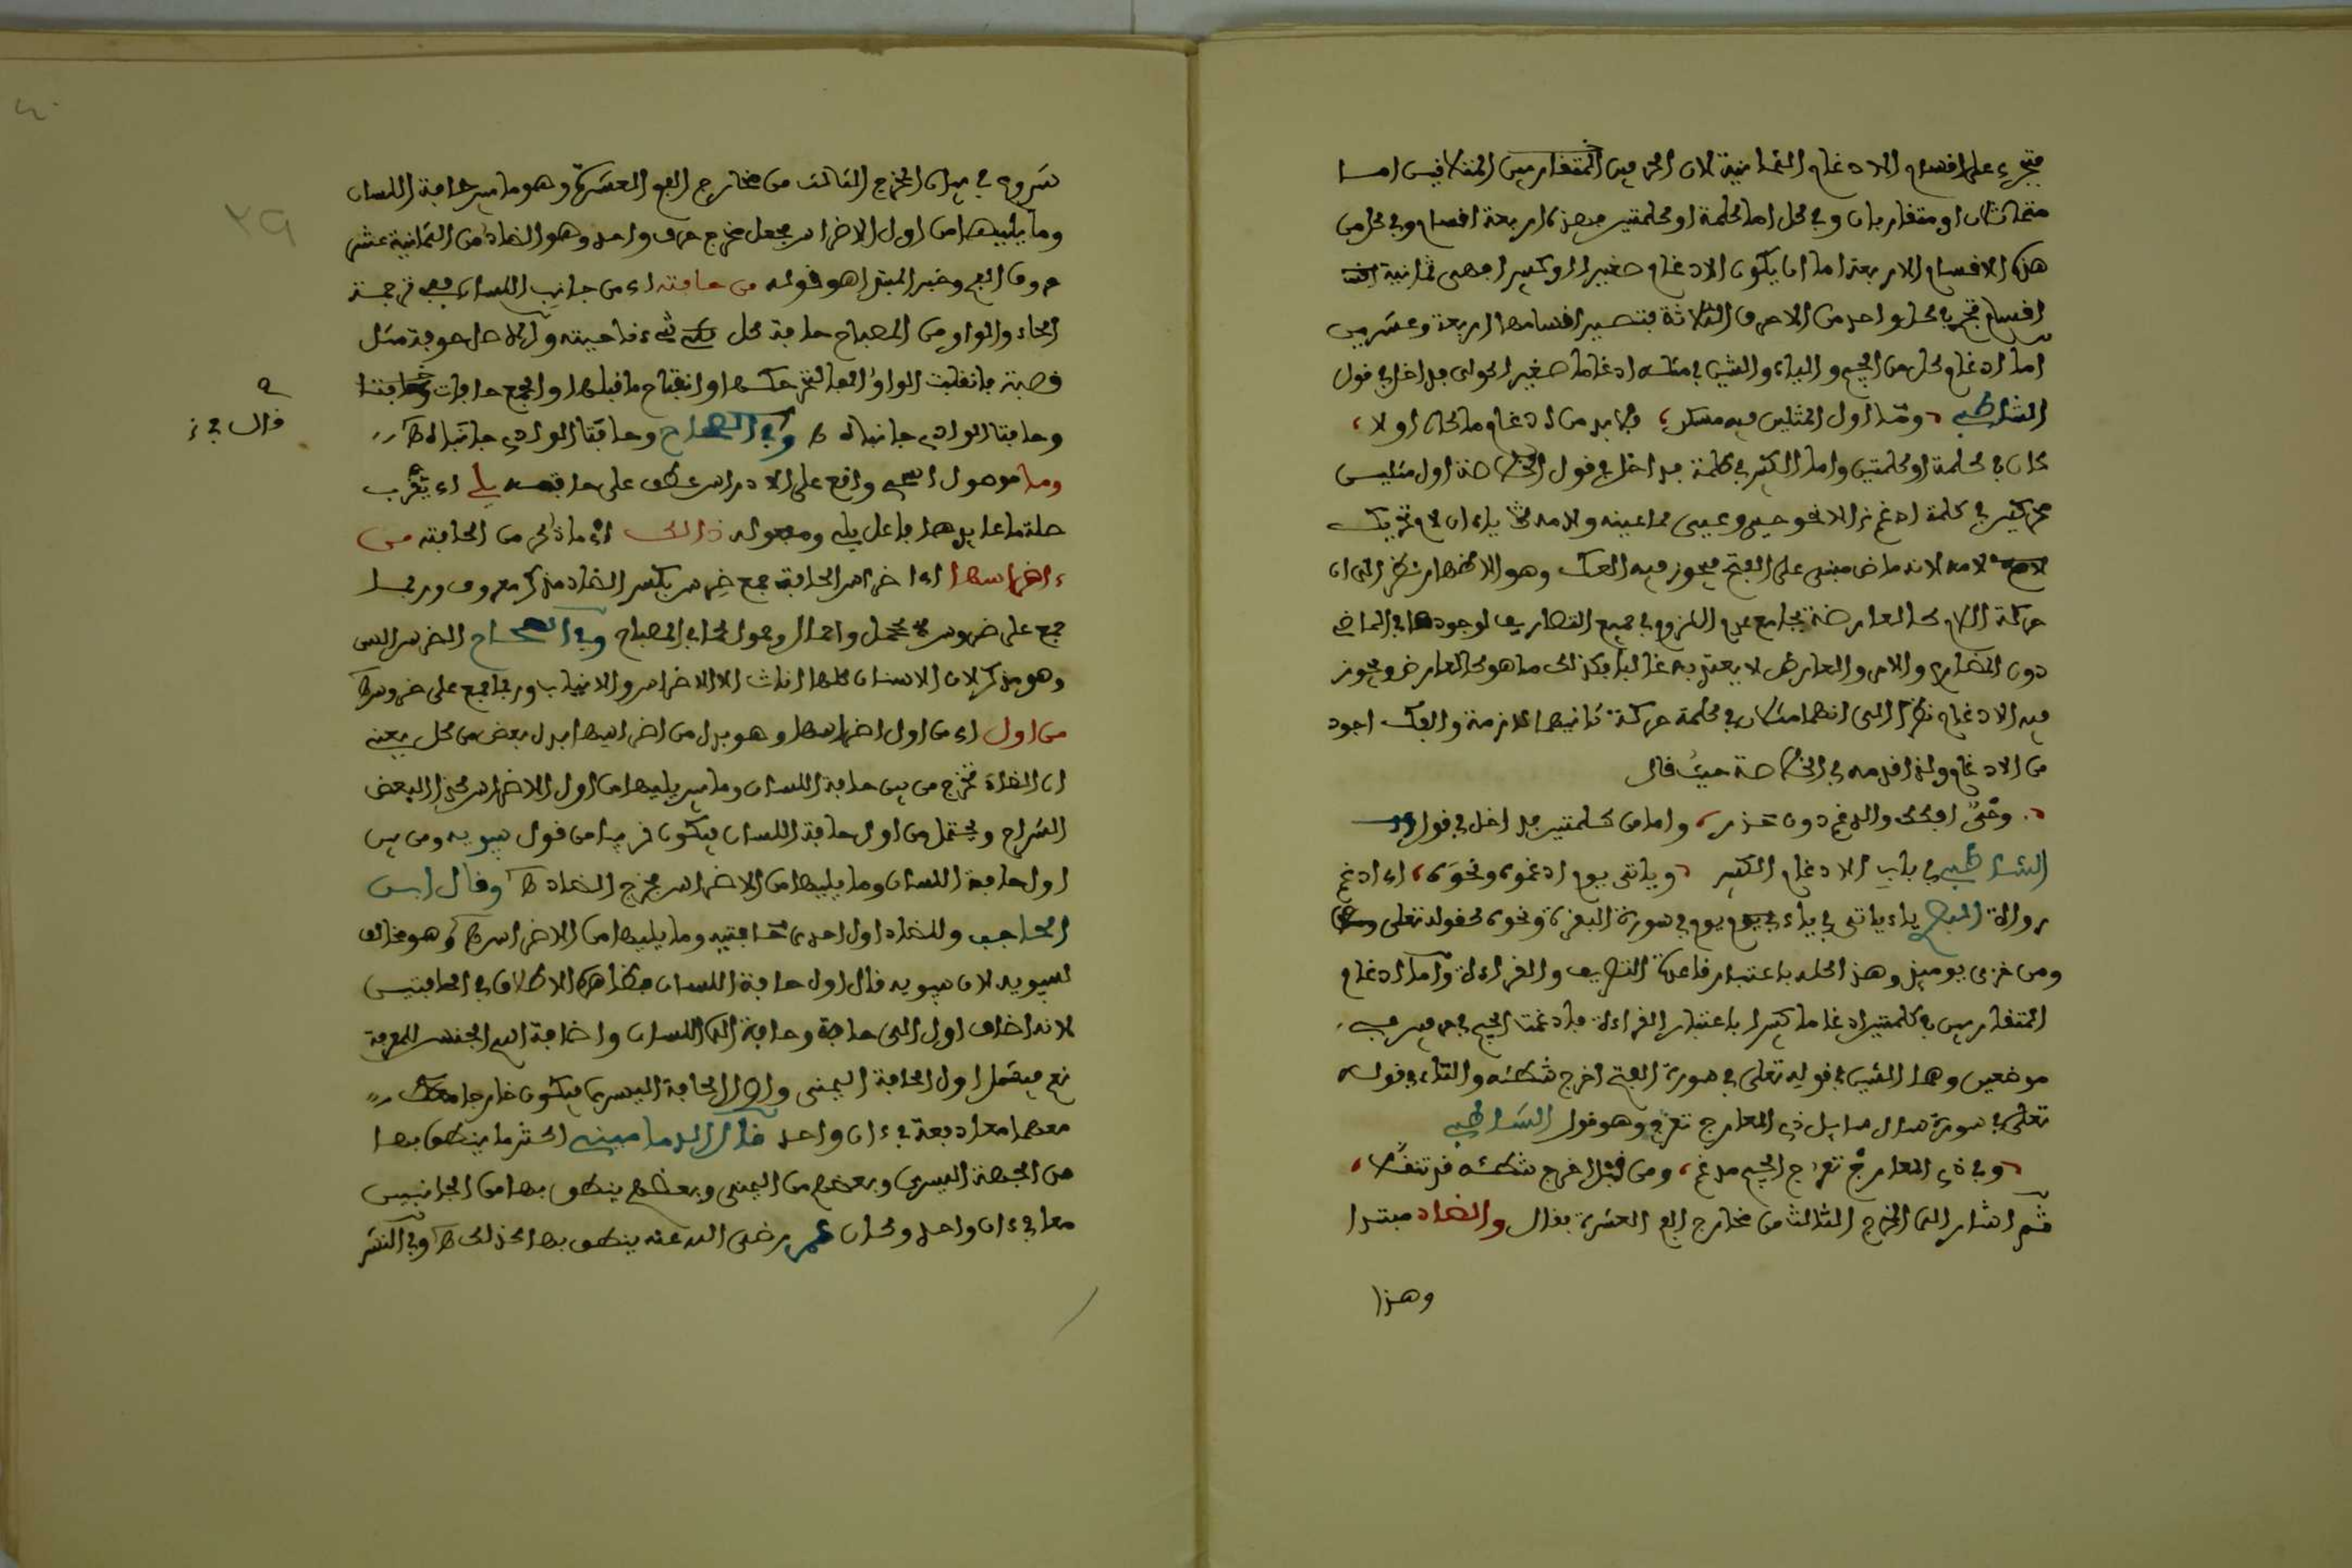 فتجري على اقسام الادغام الثمانية لان الحرفين المتقاربين المتلاقيين اما
متماثلان او متقاربان وفي كل اما كلمة او كلمتين فهذه اربعة اقسام وفي كل من
هذه الاقسام الاربعة اما ان يكون الادغام صغيرا او كبيرا فهي ثمانية
اقسام تجري في كل واحد من الاحرف الثلاثة فتصير اقسامها اربعة وعشرين
اما ادغام كل من الجيم والياء والشين في مثله ادغاما صغيرا فداخل في قول
الشاطبي وما اول المثلين فيه مسكن فلا بد من ادغامه
كان في كلمة او كلمتين واما الكبير في كلمة فداخل في قول الخلاصة اول مثلين
محركين في كلمة ادغم الا نحو حيي وعيي مما عينه ولامه ياءان لازم تحريك
لامه لانه ماض مبني على الفتح فيجوز فيه الفك وهو الاظهار نظرا الى ان
حركة اللام كالعارضة بجامع عدم اللزوم في جميع التصاريف لوجودها في الماضي
دون المضارع والامر والعارض لا يعتد به غالبا فكذلك ما هو كالعارض ويجوز
فيه الادغام نظرا الى انهما مثلان في كلمة حركة ثانيهما لازمة والفك اجود
من الادغام ولذا قدمه في الخلاصة حيث قال
وحيي افكك وادغم دون حذر واما من كلمتين فداخل في قول
الشاطبي في باب الادغام الكبير وياتي يوم ادغموه ونحوه اي ادغم
رواة ياء ياتي في ياء يوم في سورة البقرة ونحوه كقوله تعلى
ومن خزي يوميذ وهذا كله باعتبار قاعدة التصريف والقراءة واما ادغام
المتقاربين في كلمتين ادغاما كبيرا باعتبار القراءة فادغمت الجيم في حرفين في
موضعين وهما الشين في قوله تعلى في سورة الفتح اخرج شطئه والتاء في قوله
تعلى في سورة سال سايل ذي المعارج تعرج وهو قول الشاطبي
وفي ذي المعارج تعرج الجيم مدغم ومن قبل اخرج شطئه قد تثقلا
ثم اشار الى المخرج الثالث من مخارج الفم العشرة بقوله والضاد مبتدا
وهذا
شروع في بيان المخرج الثالث من مخارج الفم العشرة وهو ما بين حافة اللسان
وما يليها من اول الاضراس فجعل مخرج حرف واحد وهو الضاد من الثمانية عشر
حروف الفم وخبر المبتدا هو قوله من حافته اي من جانب اللسان ففي ترجمة
الحاء والواو من المصباح حافة كل شيء ناحيته والاصل حوفة مثل
قصبة فانقلبت الواو الفا لتحركها وانفتاح ما قبلها والجمع حافات
وحافتا الوادي جانباه ه وفي الصحاح وحافتا الوادي جانباه ه
وما موصول اسمي واقع على الاضراس عطف على حافته يلي اي يقرب
صلة ما عايدها فاعل يلي ومفعوله ذلك اي ما ذكر من الحافة من
اضراسها اي اضراس الحافة جمع ضرس بكسر الضاد مذكر معروف وربما
جمع على ضروس كحمل واحمال وحمول كما في المصباح وفي الصحاح الضرس السن
وهو مذكر لان الاسنان كلها اناث الا الاضراس والانياب وربما جمع على ضروس ه
من اول اي من اول اضراسها وهو بدل من اضراسها بدل بعض من كل يعني
ان الضاد تخرج من بين حافة اللسان وما يليها من اول الاضراس كذا لبعض
الشراح ويحتمل من اول حافة اللسان فيكون قريبا من قول سيبويه ومن بين
اول حافة اللسان وما يليها من الاضراس مخرج الضاد ه وقال ابن
الحاجب وللضاد اول احدى حافتيه وما يليها من الاضراس ه وهو مخالف
لسيبويه لان سيبويه قال اول حافة اللسان فظاهره الاطلاق في الحافتين
لانه اضاف اول الى حافة وحافة الى اللسان واضافة اسم الجنس للمعرفة
تعم فيشمل اول الحافة اليمنى واول الحافة اليسرى فيكون خارجا
معهما معا دفعة في ءان واحد قال الدماميني اكثر ما ينطق بها
من الجهة اليسرى وبعضهم من اليمنى وبعضهم ينطق بها من الجانبين
معا في ءان واحد وكان عمر رضي الله عنه ينطق بها كذلك ه وفي النشر